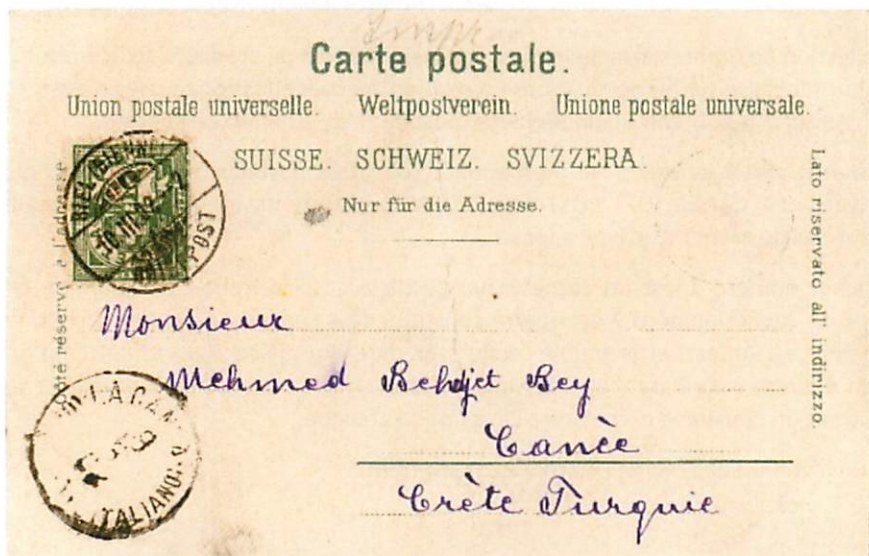 Carte postale.
Union postale universelle. Weltpostverein. Unione postale universale.
SUISSE. SCHWEIZ. SVIZZERA.
Nur für die Adresse.
Côté réservé à l'adresse
Lato riservato all' indirizzo.
BIEL (BIENNE)
POST
Monsieur
Mehmed Behdjet Bey
Canèe
Crète Turquie
LA CAN
ITALIANO